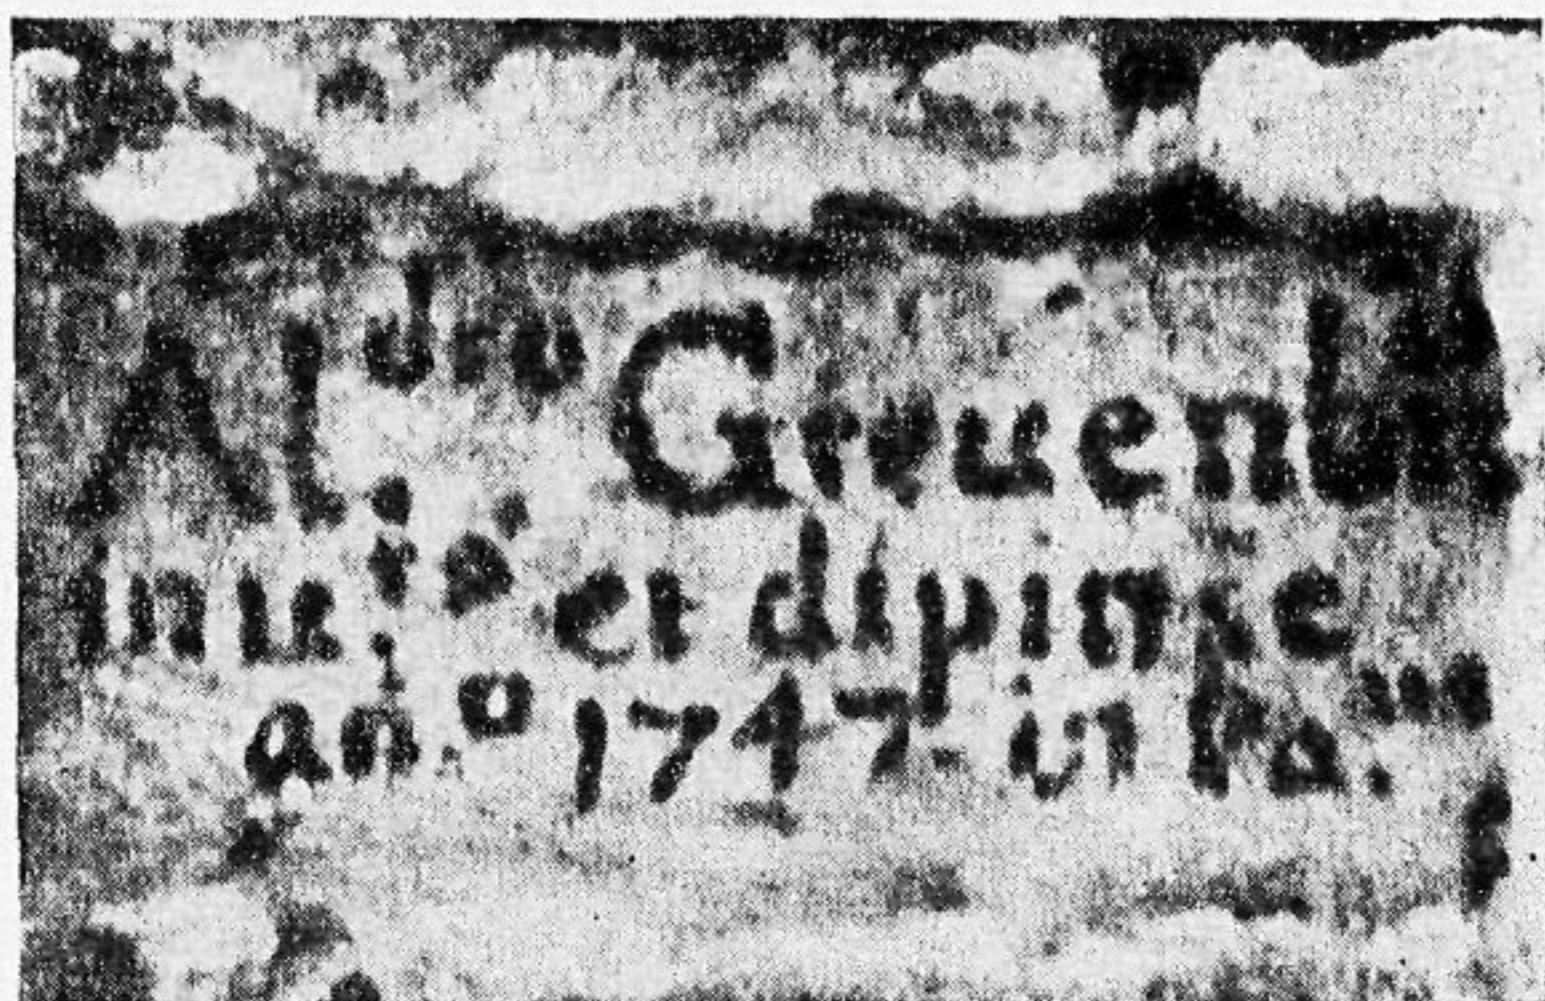 Al.dro Greuenbr
inu.i et dipinse
an.o 1747 in